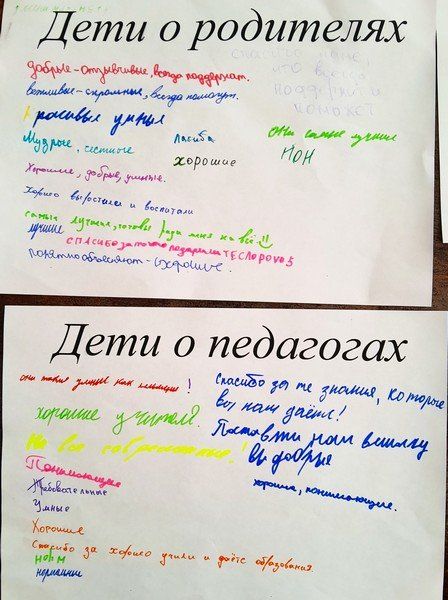 Дети о родителях
добрые-отзывчивые, всегда поддержат.
спасибо папе,
что всегда
поддержит и
поможет
вежливые-скромные, всегда помогут.
красивые умныя
Мудрые, честные
ласиба
они самые лучшие
хорошие
НОН
Хорошие, добрые, умные.
Хорошо вырастили и воспитали
самые лучшие, готовы ради меня на всё
лучшие
СПАСИБО за то что подарили TECHNO POVO 5
понятно объясняют - хорошие
Дети о педагогах
они такие умные как милиции!
Спасибо за те знания, которые
вы нам даёте!
хорошие учителя.
Поставьте нам вешалку
Вы все современные!
Вы добрые
Понимающие
хорошие, понимающие.
Требовательные
Умные
Хорошие
Спасибо за хорошо учили и даёте образования.
НОРМ
нормальные